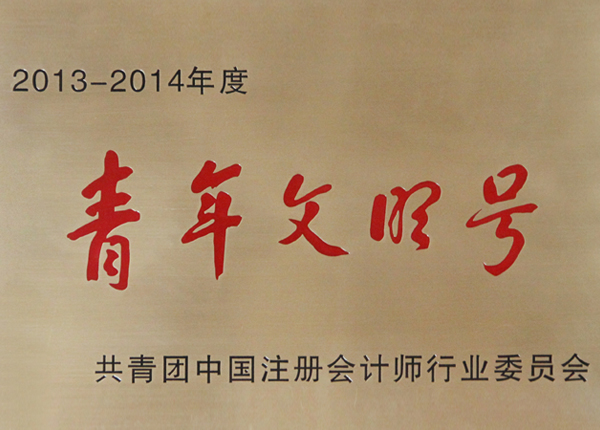 2013-2014年度
青年文明号
共青团中国注册会计师行业委员会